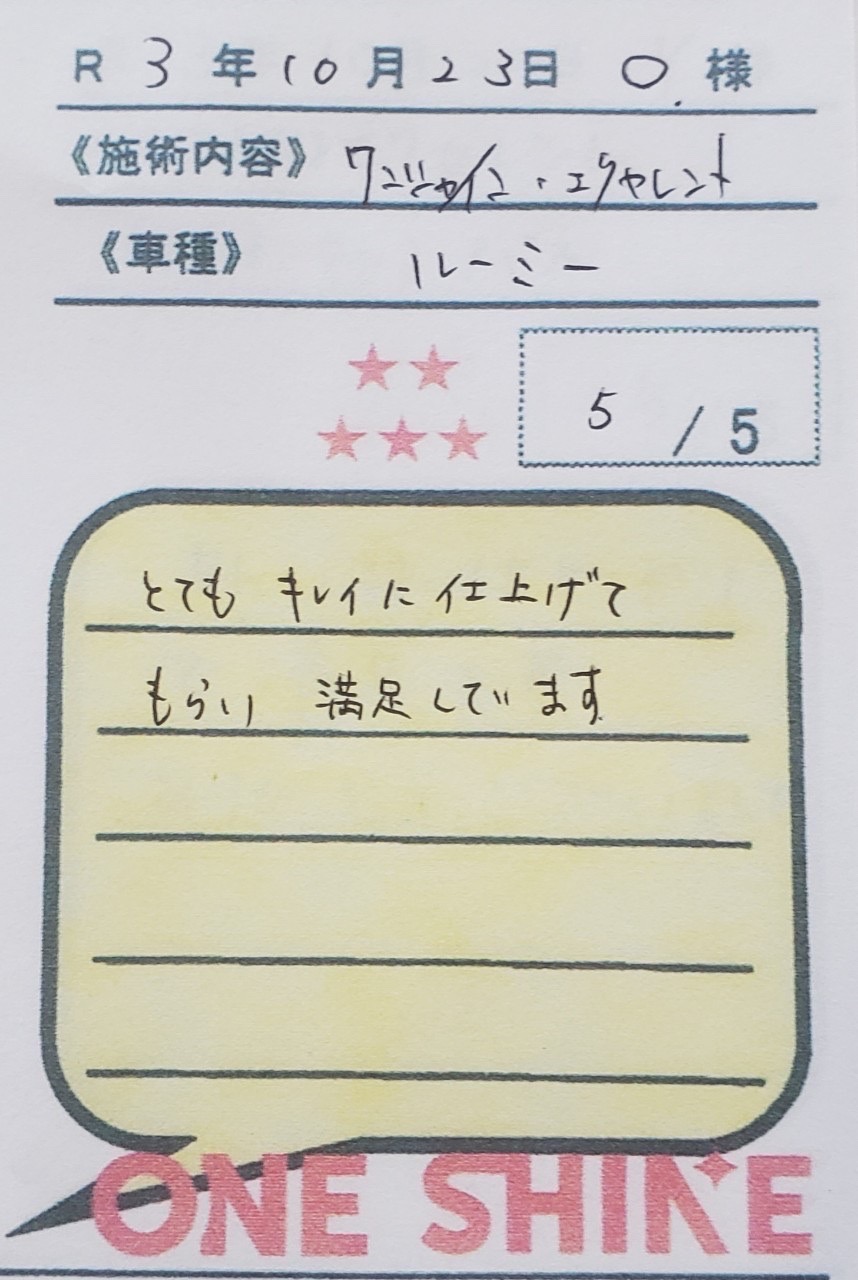 R 3 年 10 月 23日 O. 様
《施術内容》 ワンシャイン・エクセレント
《車種》 ルーミー
★★
★★★
5 / 5
とても キレイに 仕上げて
もらい 満足しています
ONE SHINE